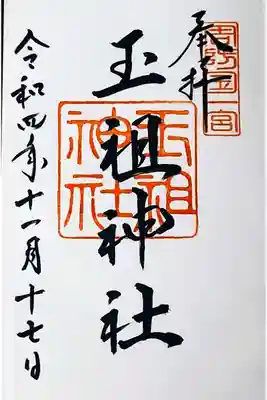 奉拝
周防一宮
玉祖神社
玉祖神社
令和四年十一月十七日